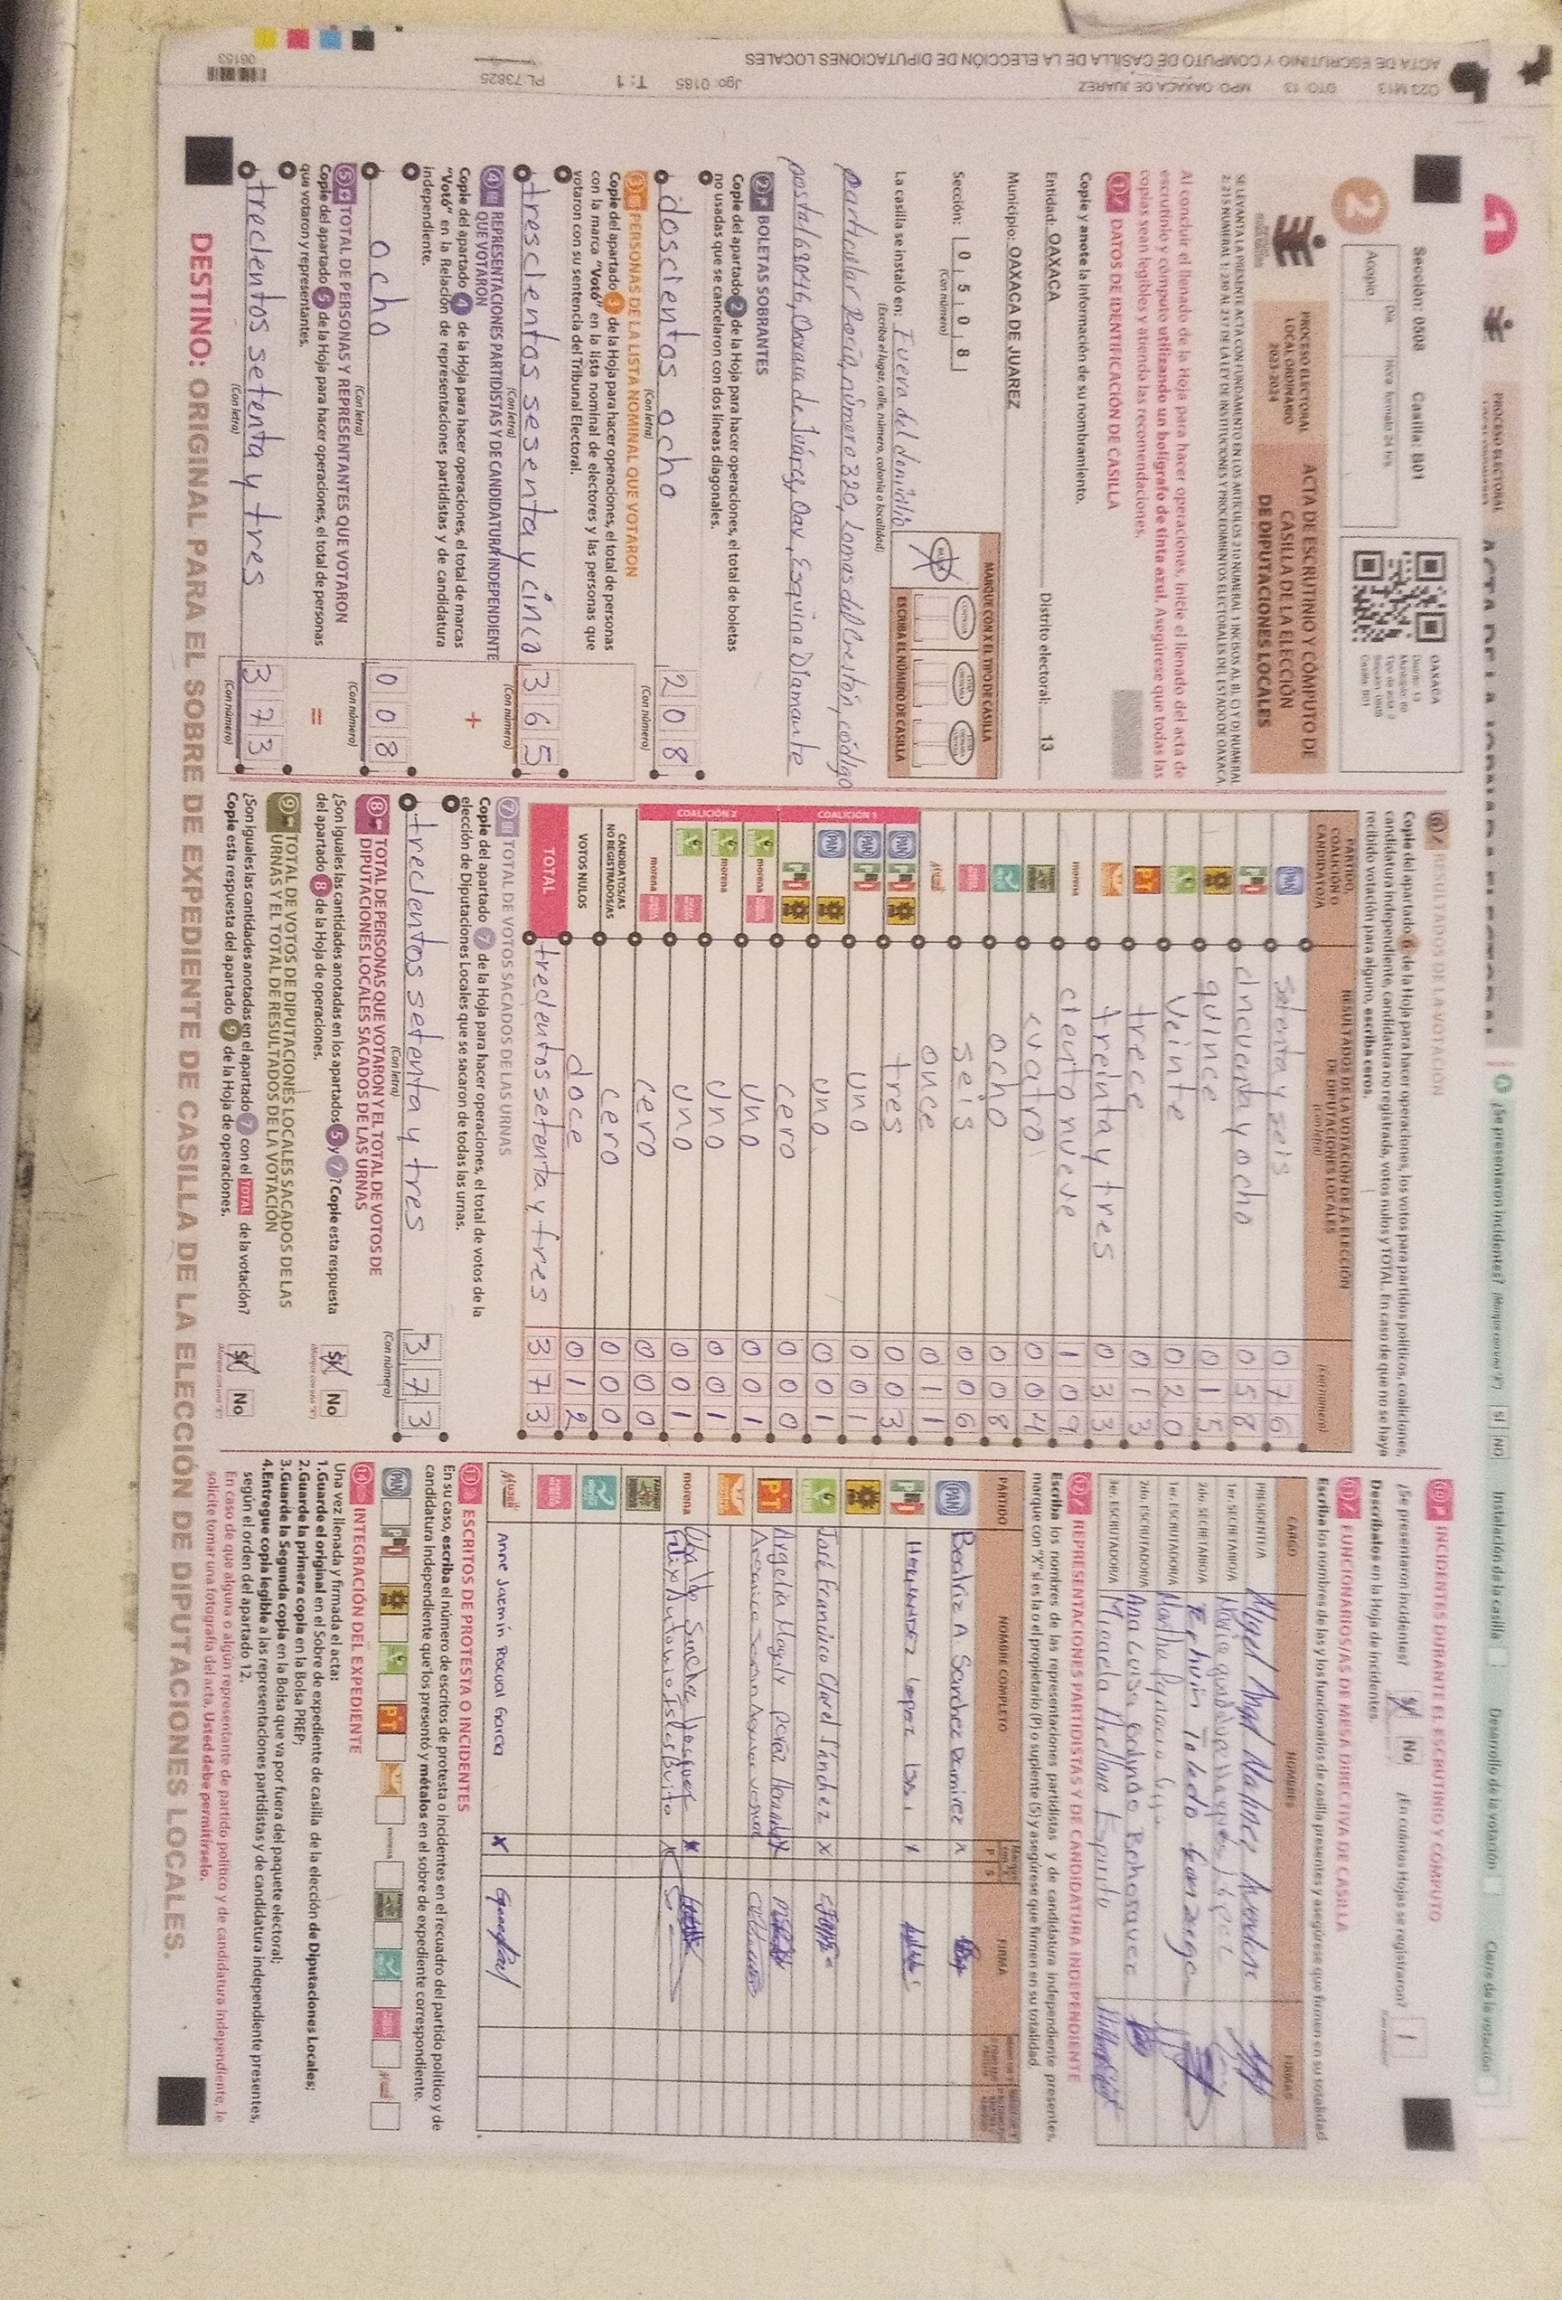 PROCESO ELECTORAL
Sección: 0508 Casilla: B01
2
Acopio
Día
Hora formato 24 hrs.
OAXACA
PROCESO ELECTORAL
LOCAL ORDINARIO
2023-2024
ACTA DE ESCRUTINIO Y CÓMPUTO DE
CASILLA DE LA ELECCIÓN
DE DIPUTACIONES LOCALES
Al concluir el llenado de la Hoja para hacer operaciones, inicie el llenado del acta de
escrutinio y cómputo utilizando un bolígrafo de tinta azul. Asegúrese que todas las
copias sean legibles y atienda las recomendaciones.
1 DATOS DE IDENTIFICACIÓN DE CASILLA
Copie y anote la información de su nombramiento.
Entidad: OAXACA Distrito electoral: 13
Municipio: OAXACA DE JUAREZ
Sección: 0 5 0 8
(Con número)
MARQUE CON X EL TIPO DE CASILLA
ESCRIBA EL NÚMERO DE CASILLA
La casilla se instaló en: Fuera del domicilio
(Escriba el lugar, calle, número, colonia o localidad)
particular Rocío, número 320, Lomas del Crestón, código
postal 68046, Oaxaca de Juárez, Oax, Esquina Diamante
2 BOLETAS SOBRANTES
Copie del apartado 2 de la Hoja para hacer operaciones, el total de boletas
no usadas que se cancelaron con dos líneas diagonales.
doscientos ocho 2 0 8
(Con letra) (Con número)
3 PERSONAS DE LA LISTA NOMINAL QUE VOTARON
Copie del apartado 3 de la Hoja para hacer operaciones, el total de personas
con la marca "Votó" en la lista nominal de electores y las personas que
votaron con su sentencia del Tribunal Electoral.
trescientos sesenta y cinco 3 6 5
(Con letra) (Con número)
4 REPRESENTACIONES PARTIDISTAS Y DE CANDIDATURA INDEPENDIENTE
QUE VOTARON
+
Copie del apartado 4 de la Hoja para hacer operaciones, el total de marcas
"Votó" en la Relación de representaciones partidistas y de candidatura
independiente.
ocho 0 0 8
(Con letra) (Con número)
5 TOTAL DE PERSONAS Y REPRESENTANTES QUE VOTARON
=
Copie del apartado 5 de la Hoja para hacer operaciones, el total de personas
que votaron y representantes.
trecientos setenta y tres 3 7 3
(Con letra) (Con número)
6 RESULTADOS DE LA VOTACIÓN
Copie del apartado 6 de la Hoja para hacer operaciones, los votos para partidos políticos, coaliciones,
candidatura independiente, candidatura no registrada, votos nulos y TOTAL. En caso de que no se haya
recibido votación para alguno, escriba ceros.
PARTIDO,
COALICIÓN O
CANDIDATO/A
RESULTADOS DE LA VOTACIÓN DE LA ELECCIÓN
DE DIPUTACIONES LOCALES
(Con letra) (Con número)
PAN setenta y seis 0 7 6
PRI cincuenta y ocho 0 5 8
quince 0 1 5
veinte 0 2 0
PT trece 0 1 3
treinta y tres 0 3 3
morena ciento nueve 1 0 9
cuatro 0 0 4
ocho 0 0 8
seis 0 0 6
Mujer once 0 1 1
COALICIÓN 1
PAN PRI tres 0 0 3
PAN PRI uno 0 0 1
PAN uno 0 0 1
PRI cero 0 0 0
COALICIÓN 2
morena uno 0 0 1
morena uno 0 0 1
uno 0 0 1
morena cero 0 0 0
CANDIDATOS/AS
NO REGISTRADOS/AS cero 0 0 0
VOTOS NULOS doce 0 1 2
TOTAL trecientos setenta y tres 3 7 3
7 TOTAL DE VOTOS SACADOS DE LAS URNAS
Copie del apartado 7 de la Hoja para hacer operaciones, el total de votos de la
elección de Diputaciones Locales que se sacaron de todas las urnas.
trecientos setenta y tres 3 7 3
(Con letra) (Con número)
8 TOTAL DE PERSONAS QUE VOTARON Y EL TOTAL DE VOTOS DE
DIPUTACIONES LOCALES SACADOS DE LAS URNAS
¿Son iguales las cantidades anotadas en los apartados 5 y 7? Copie esta respuesta
del apartado 8 de la Hoja de operaciones.
Sí No
9 TOTAL DE VOTOS DE DIPUTACIONES LOCALES SACADOS DE LAS
URNAS Y EL TOTAL DE RESULTADOS DE LA VOTACIÓN
¿Son iguales las cantidades anotadas en el apartado 7 con el TOTAL de la votación?
Copie esta respuesta del apartado 9 de la Hoja de operaciones.
Sí No
¿Se presentaron incidentes? SÍ NO Instalación de la casilla Desarrollo de la votación Cierre de la votación
10 INCIDENTES DURANTE EL ESCRUTINIO Y CÓMPUTO
¿Se presentaron incidentes? Sí No ¿En cuántas Hojas se registraron? 1
Descríbalos en la Hoja de incidentes
11 FUNCIONARIOS/AS DE MESA DIRECTIVA DE CASILLA
Escriba los nombres de las y los funcionarios de casilla presentes y asegúrese que firmen en su totalidad.
CARGO NOMBRES FIRMAS
PRESIDENTE/A
1er. SECRETARIO/A
2do. SECRETARIO/A
1er. ESCRUTADOR/A
2do. ESCRUTADOR/A Ana Luisa
3er. ESCRUTADOR/A Micaela Arellano Espíritu
12 REPRESENTACIONES PARTIDISTAS Y DE CANDIDATURA INDEPENDIENTE
Escriba los nombres de las representaciones partidistas y de candidatura independiente presentes,
marque con "X" si es la o el propietario (P) o suplente (S) y asegúrese que firmen en su totalidad.
PARTIDO NOMBRE COMPLETO P S FIRMA
PAN Beatriz A. Sanchez Ramirez x
PRI Hernandez Lopez
José Francisco Claret Sánchez x
PT Angelia Magaly perez
morena Ubaldo
Felix Antonio Isles
Mujer Anne Jazmín Pascual Garcia x
13 ESCRITOS DE PROTESTA O INCIDENTES
En su caso, escriba el número de escritos de protesta o incidentes en el recuadro del partido político y de
candidatura independiente que los presentó y métalos en el sobre de expediente correspondiente.
PAN PRI PT morena
14 INTEGRACIÓN DEL EXPEDIENTE
Una vez llenada y firmada el acta:
1.Guarde el original en el Sobre de expediente de casilla de la elección de Diputaciones Locales;
2.Guarde la primera copia en la Bolsa PREP;
3.Guarde la Segunda copia en la Bolsa que va por fuera del paquete electoral;
4.Entregue copia legible a las representaciones partidistas y de candidatura independiente presentes,
según el orden del apartado 12.
En caso de que alguna o algún representante de partido político y de candidatura independiente, le
solicite tomar una fotografía del acta, Usted debe permitírselo.
DESTINO: ORIGINAL PARA EL SOBRE DE EXPEDIENTE DE CASILLA DE LA ELECCIÓN DE DIPUTACIONES LOCALES.
023 M13 DTO: 13 MPO: OAXACA DE JUAREZ Jgo: 0185 T: 1 PL 73825
ACTA DE ESCRUTINIO Y CÓMPUTO DE CASILLA DE LA ELECCIÓN DE DIPUTACIONES LOCALES
06153